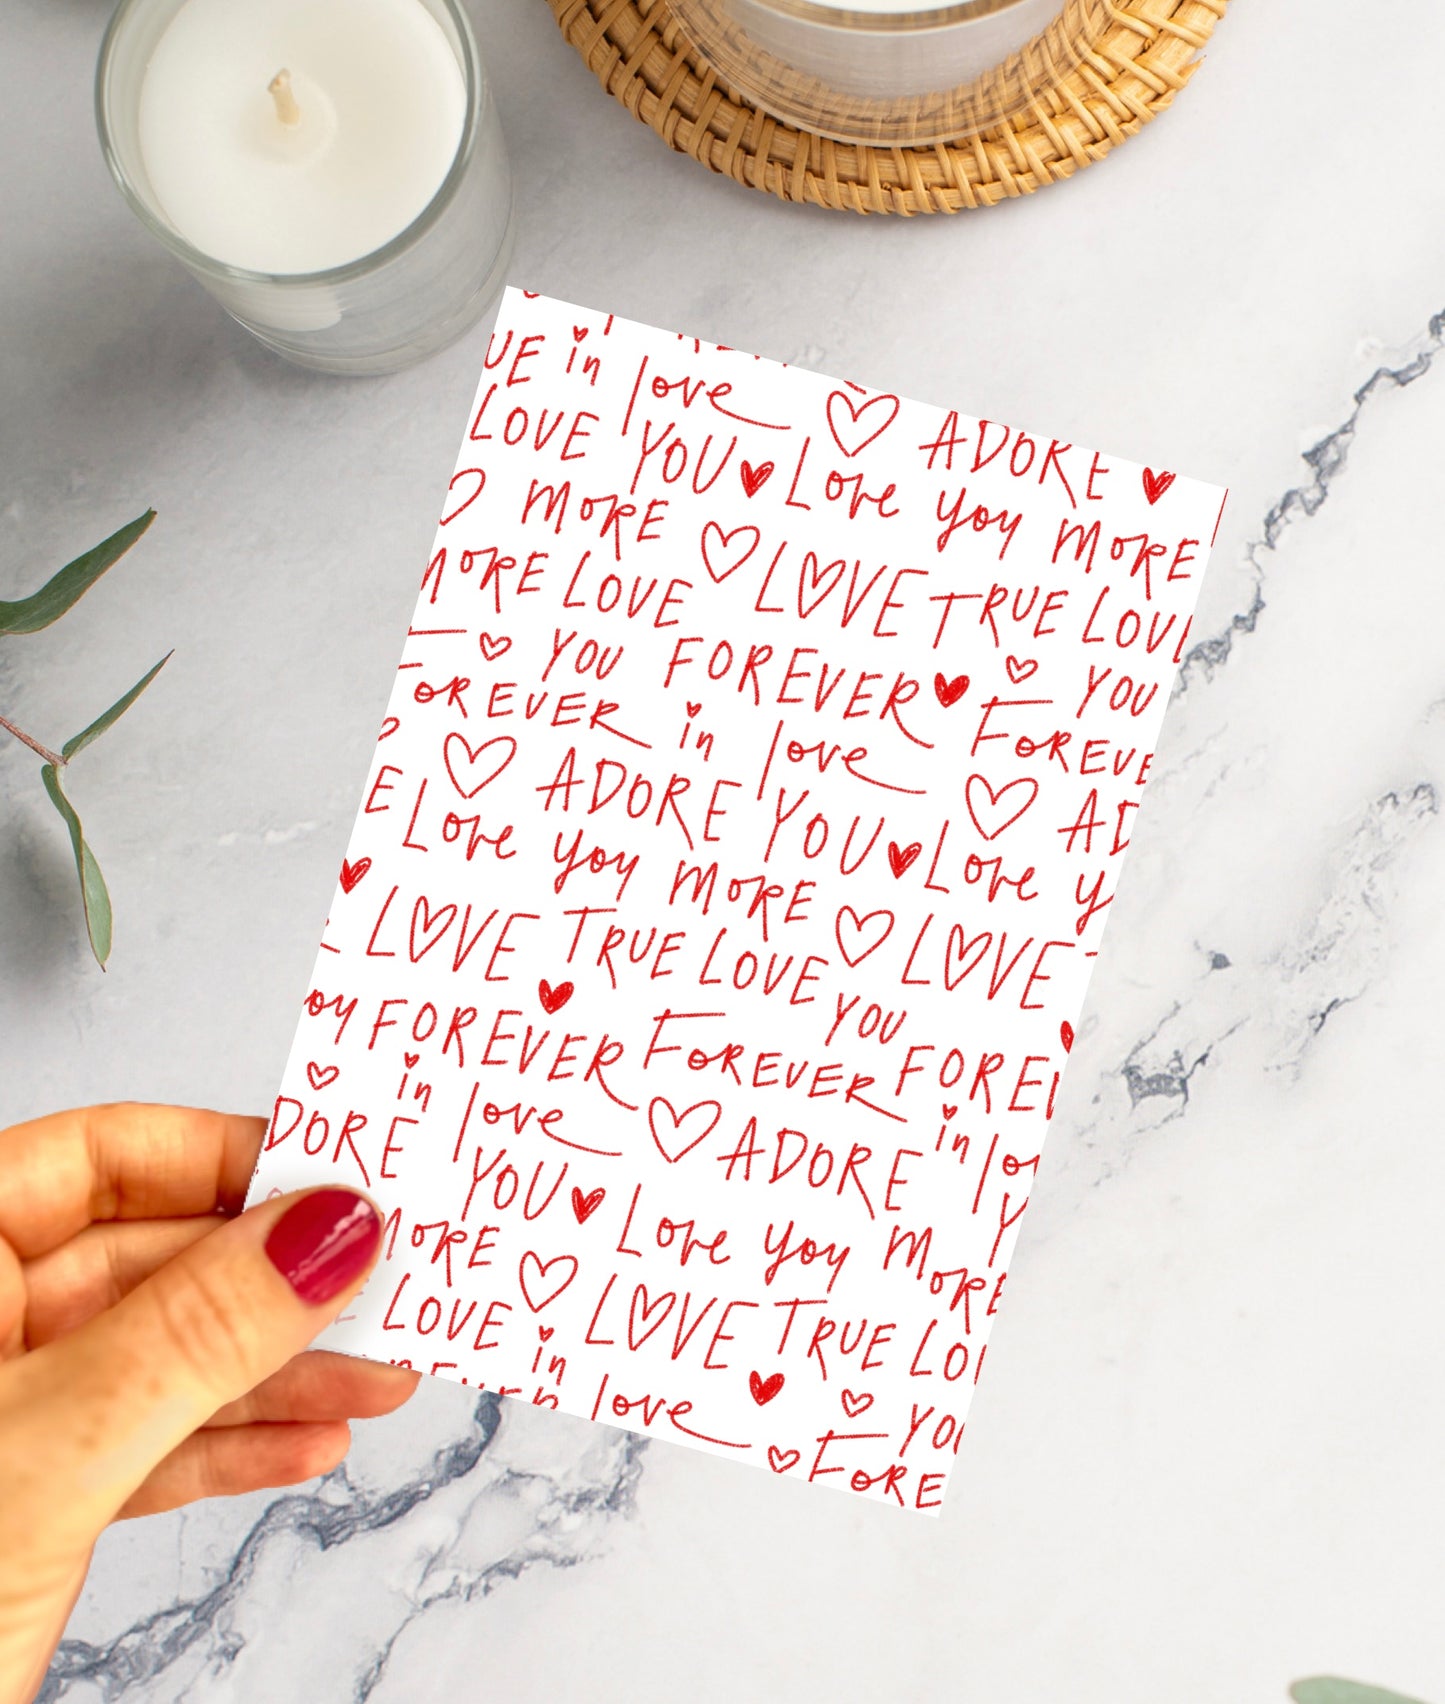 in love ADORE
LOVE YOU Love you MORE
MORE LOVE TRUE LOVE
MORE LOVE YOU FOREVER YOU
FOREVER in love FOREVER
ADORE YOU Love
Love you MORE LOVE
LOVE TRUE LOVE YOU
FOREVER FOREVER
in love ADORE in
YOU Love you MORE
MORE LOVE TRUE
LOVE in love YOU